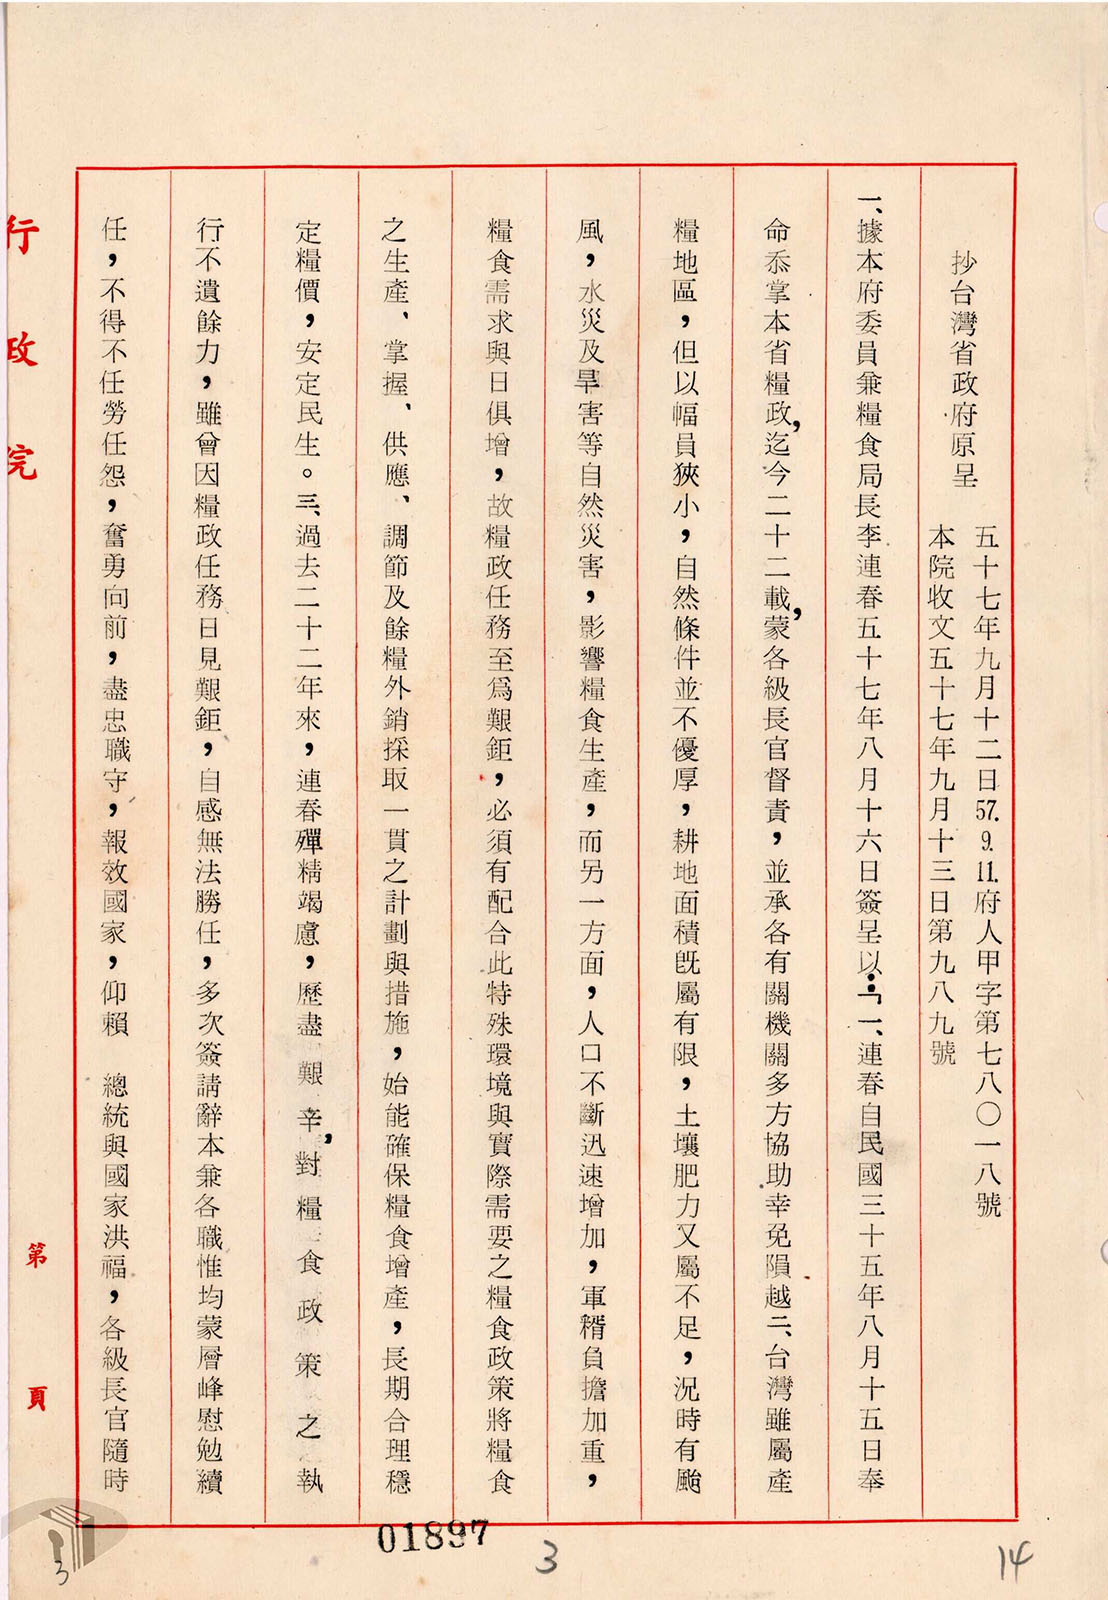 抄台灣省政府原呈
五十七年九月十二日57.9.11.府人甲字第七八〇一八號
本院收文五十七年九月十三日第九八九號
一、據本府委員兼糧食局長李連春五十七年八月十六日簽呈以：「一、連春自民國三十五年八月十五日奉
命忝掌本省糧政，迄今二十二載，蒙各級長官督責，並承各有關機關多方協助幸免隕越二、台灣雖屬產
糧地區，但以幅員狹小，自然條件並不優厚，耕地面積既屬有限，土壤肥力又屬不足，況時有颱
風，水災及旱害等自然災害，影響糧食生產，而另一方面，人口不斷迅速增加，軍糈負擔加重，
糧食需求與日俱增，故糧政任務至為艱鉅，必須有配合此特殊環境與實際需要之糧食政策將糧食
之生產、掌握、供應、調節及餘糧外銷採取一貫之計劃與措施，始能確保糧食增產，長期合理穩
定糧價，安定民生。三、過去二十二年來，連春殫精竭慮，歷盡艱辛，對糧食政策之執
行不遺餘力，雖曾因糧政任務日見艱鉅，自感無法勝任，多次簽請辭本兼各職惟均蒙層峰慰勉續
任，不得不任勞任怨，奮勇向前，盡忠職守，報效國家，仰賴　總統與國家洪福，各級長官隨時
行政院
第　頁
01897
3
14
3